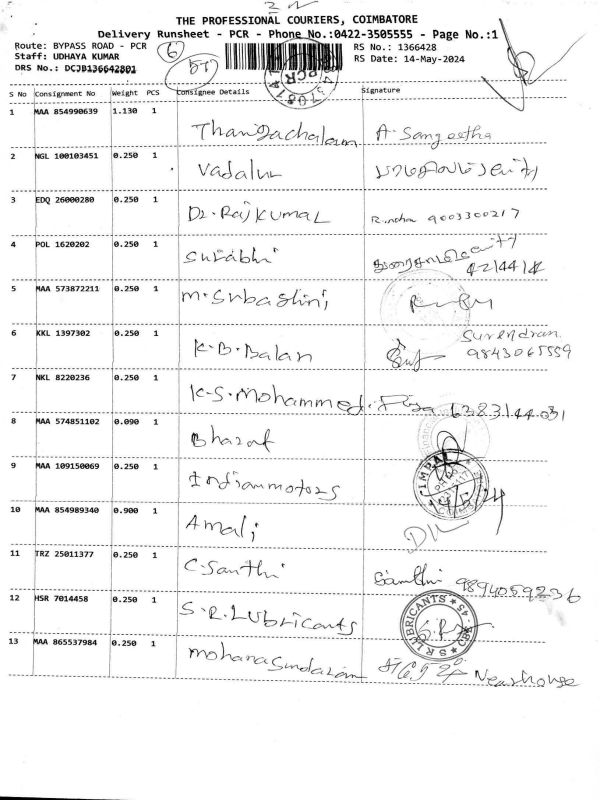 THE PROFESSIONAL COURIERS, COIMBATORE
Delivery Runsheet - PCR - Phone No.:0422-3505555 - Page No.:1
Route: BYPASS ROAD - PCR
RS No.: 1366428
Staff: UDHAYA KUMAR
RS Date: 14-May-2024
DRS No.: DCJB136642801
S No Consignment No Weight PCS Consignee Details Signature
1 MAA 854990639 1.130 1 Thangachalam A. Sangeetha
2 NGL 100103451 0.250 1 Vadalur
3 EDQ 26000280 0.250 1 Dr. Rajkumar 9003300217
4 POL 1620202 0.250 1 Surabhi
5 MAA 573872211 0.250 1 M. Subashini
6 KKL 1397302 0.250 1 K.B. Balan Surendran
9843065559
7 NKL 8220236 0.250 1 K.S. Mohammed 6383144031
8 MAA 574851102 0.090 1 Bharat
9 MAA 109150069 0.250 1 Indian motors
10 MAA 854989340 0.900 1 Amali
11 TRZ 25011377 0.250 1 C. Santhi Santhi 9894059236
12 HSR 7014458 0.250 1 S.R. Lubricants
S R LUBRICANTS
13 MAA 865537984 0.250 1 Mohanasundaram Near house